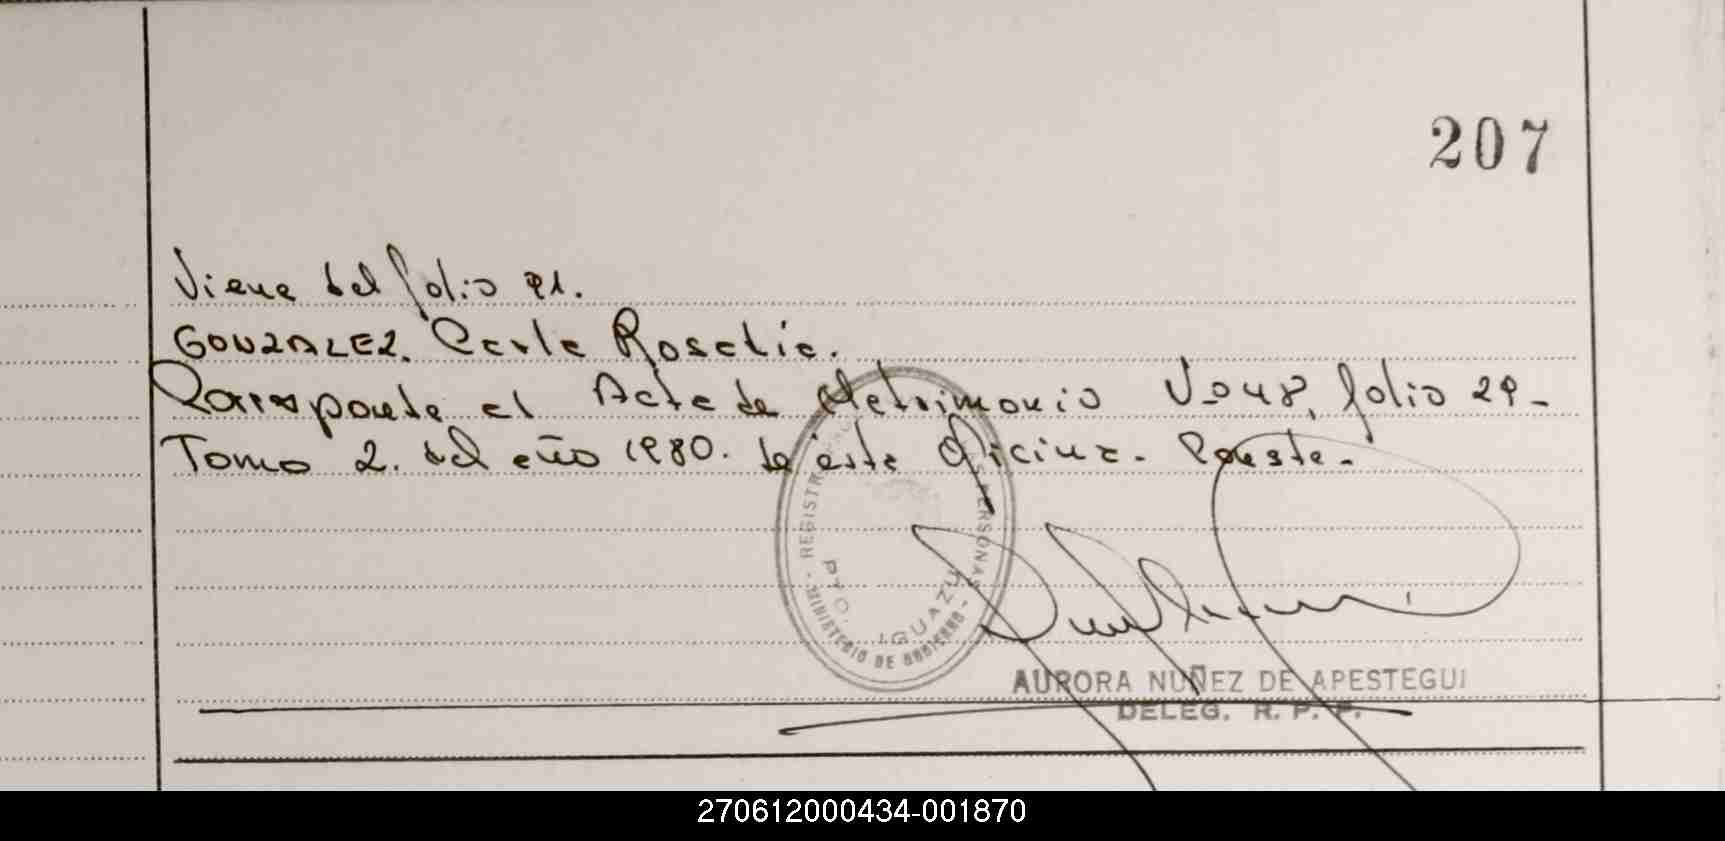 207
Viene del folio 91.
GONZALEZ. Carla Rosalia.
Corresponde al Acta de Matrimonio Nº 48, folio 29-
Tomo 2. del año 1980. de esta Oficina. Conste.-
REGISTR PERSONAS
MINISTERIO DE GOBIERNO
PTO. IGUAZU
AURORA NUÑEZ DE APESTEGUI
DELEG. R. P. P.
270612000434-001870